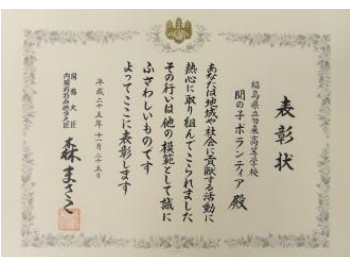 表彰状
福島県立勿来高等学校
関の子ボランティア 殿
あなたは地域や社会に貢献する活動に
熱心に取り組んでこられました
その行いは他の模範として誠に
ふさわしいものです
よってここに表彰します
平成二十五年十一月二十五日
国務大臣
内閣府特命担当大臣
森まさこ